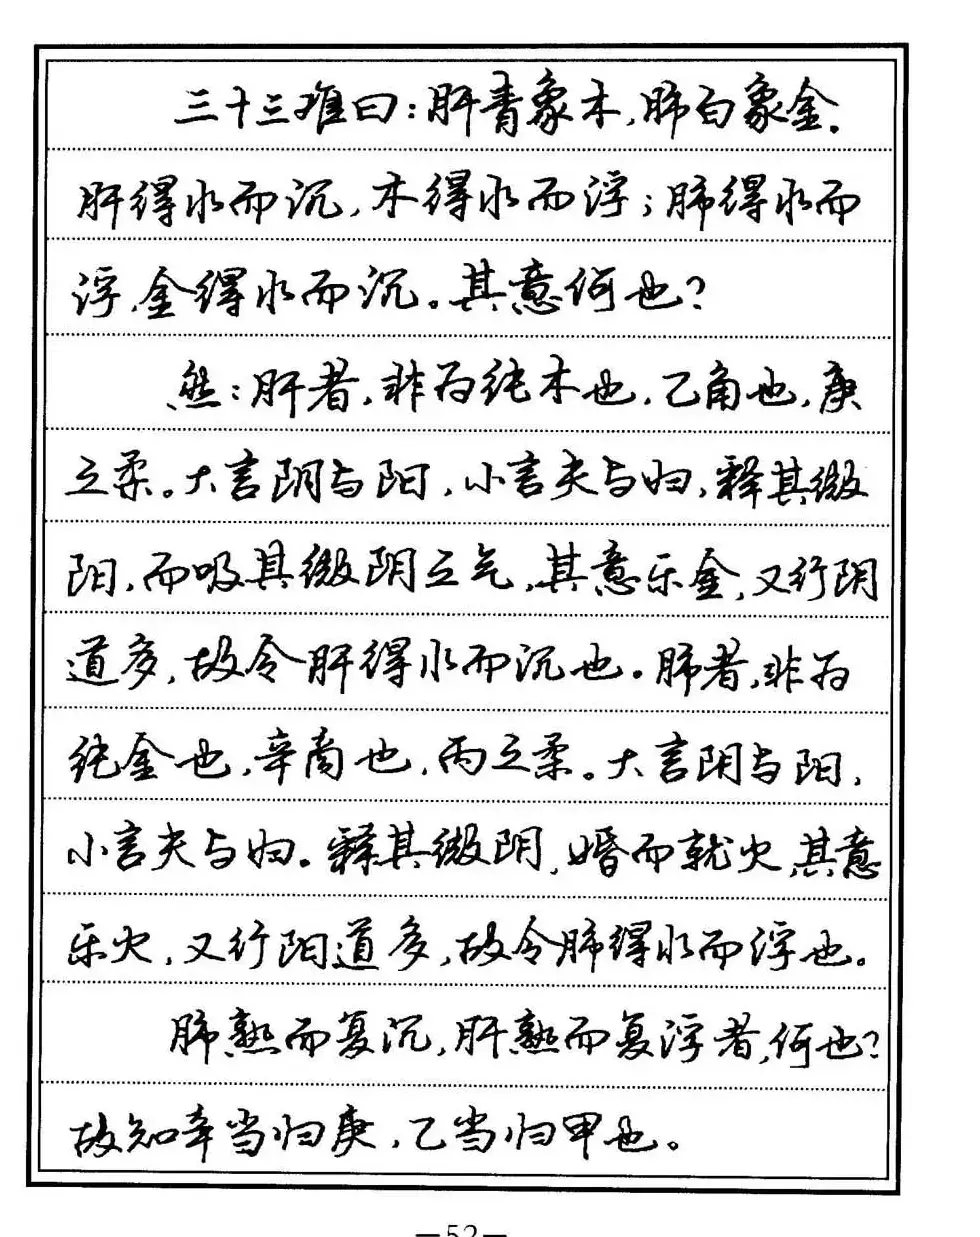 三十三难曰：肝青象木，肺白象金。
肝得水而沉，木得水而浮；肺得水而
浮，金得水而沉。其意何也？
然：肝者，非为纯木也，乙角也，庚
之柔。大言阴与阳，小言夫与妇，释其微
阳，而吸其微阴之气，其意乐金，又行阴
道多，故令肝得水而沉也。肺者，非为
纯金也，辛商也，丙之柔。大言阴与阳，
小言夫与妇。释其微阴，婚而就火，其意
乐火，又行阳道多，故令肺得水而浮也。
肺熟而复沉，肝熟而复浮者，何也？
故知辛当归庚，乙当归甲也。
—52—